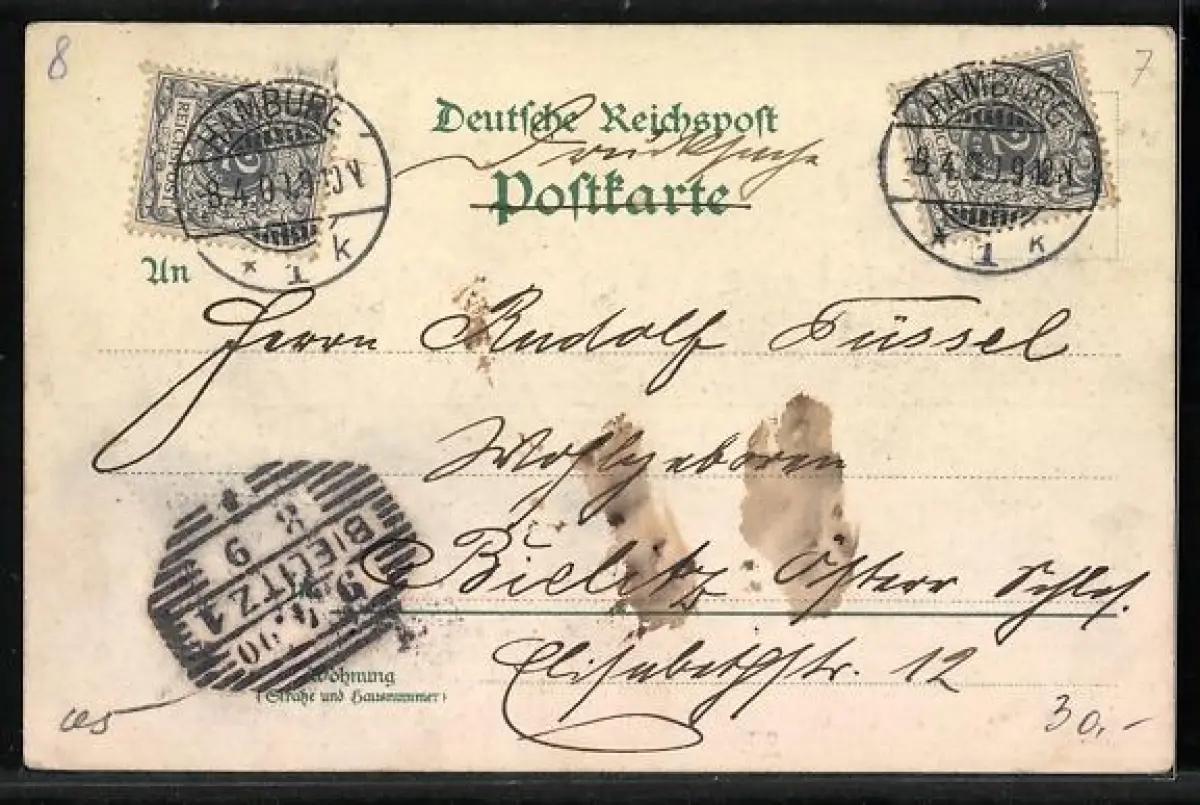 8
7
HAMBURG
8.4.0
1 k
HAMBURG
8.4.0
1 k
Deutsche Reichspost
Drucksache
Postkarte
An
Herrn Rudolf Füssel
Wohlgeboren
Bielitz Österr Schles.
Elisabethstr. 12
BIELITZ 1
9.4.00
8 9
Wohnung
(Straße und Hausnummer)
30.-